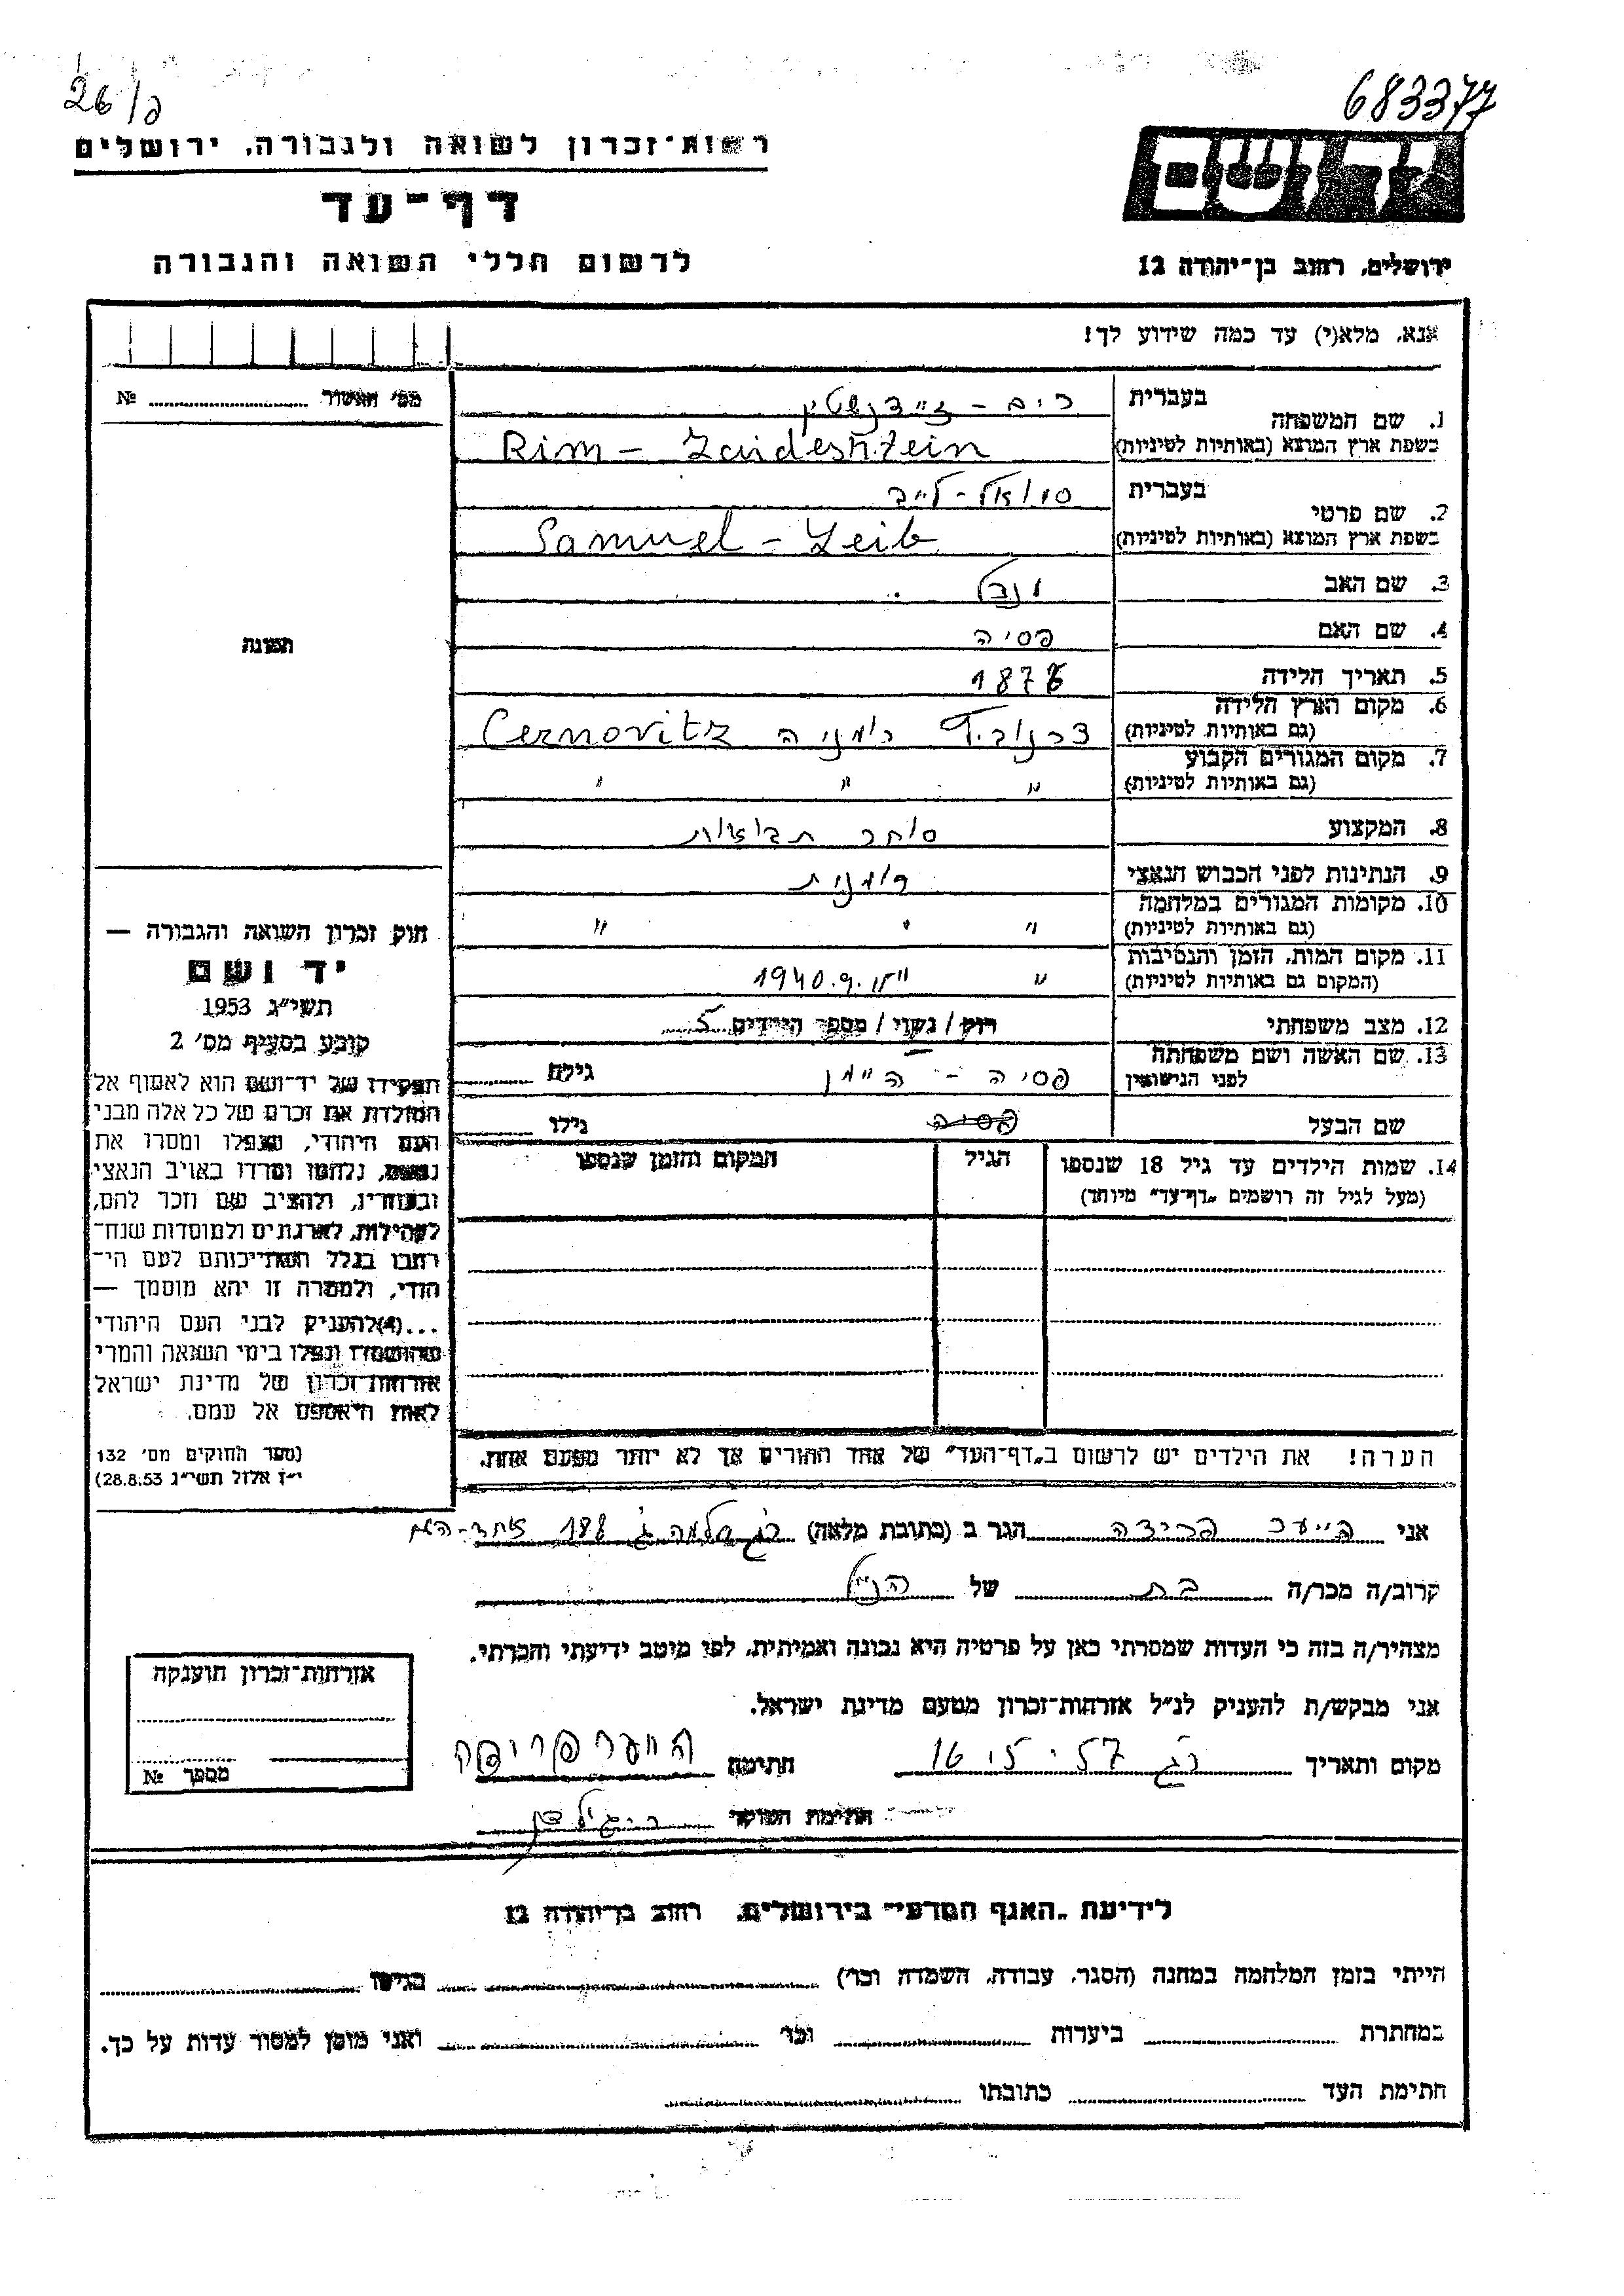 26/פ
683377
רשות־זכרון לשואה ולגבורה, ירושלים
דף־עד
לרשום חללי השואה והגבורה
יד ושם
ירושלים, רחוב בן־יהודה 12
אנא, מלא(י) עד כמה שידוע לך!
מס׳ האשור № 
1. שם המשפחה
בעברית רים - זיידנשטין
בשפת ארץ המוצא (באותיות לטיניות) Rim - Zaideshtein
2. שם פרטי
בעברית סמואל - לייב
בשפת ארץ המוצא (באותיות לטיניות) Samuel - Leib
3. שם האב
4. שם האם פסיה
5. תאריך הלידה 1876
6. מקום וארץ הלידה
(גם באותיות לטיניות) צרנוביץ רומניה Cernovitz
7. מקום המגורים הקבוע
(גם באותיות לטיניות) " " "
8. המקצוע סוחר תבואות
9. הנתינות לפני הכבוש הנאצי רומנית
10. מקומות המגורים במלחמה
(גם באותיות לטיניות) " " "
11. מקום המות, הזמן והנסיבות
(המקום גם באותיות לטיניות) " 1940.9.
12. מצב משפחתי רווק / נשוי / מספר הילדים 5
13. שם האשה ושם משפחתה
לפני הנישואין פסיה - היימן גילה
שם הבעל פסיה גילו
14. שמות הילדים עד גיל 18 שנספו
(מעל לגיל זה רושמים „דף־עד" מיוחד)
הגיל
המקום והזמן שנספו
הערה! את הילדים יש לרשום ב„דף־העד" של אחד ההורים אך לא יותר מפעם אחת.
תמונה
חוק זכרון השואה והגבורה —
יד ושם
תשי״ג 1953
קובע בסעיף מס׳ 2
תפקידו של יד־ושם הוא לאסוף אל
המולדת את זכרם של כל אלה מבני
העם היהודי, שנפלו ומסרו את
נפשם, נלחמו ומרדו באויב הנאצי
ובעוזריו, ולהציב שם וזכר להם,
לקהילות, לארגונים ולמוסדות שנח־
רבו בגלל השתייכותם לעם הי־
הודי, ולמטרה זו יהא מוסמך —
...(4)להעניק לבני העם היהודי
שהושמדו ונפלו בימי השואה והמרי
אזרחות־זכרון של מדינת ישראל
לאות היאספם אל עמם.
(ספר החוקים מס׳ 132
י״ז אלול תשי״ג 28.8.53)
אני הייער פרידה הגר ב (כתובת מלאה) רג שלמה ג׳ 188 אחד-העם
קרוב/ה מכר/ה בת של הנ״ל
מצהיר/ה בזה כי העדות שמסרתי כאן על פרטיה היא נכונה ואמיתית, לפי מיטב ידיעתי והכרתי.
אני מבקש/ת להעניק לנ״ל אזרחות־זכרון מטעם מדינת ישראל.
מקום ותאריך רג 16.5.57 חתימה הייער פרידה
חתימת הפוקד
אזרחות־זכרון הוענקה
מספר №
לידיעת „האגף המדעי" בירושלים, רחוב בן־יהודה 12
הייתי בזמן המלחמה במחנה (הסגר, עבודה, השמדה וכו׳) בגיטו
במחתרת ביערות וכו׳ ואני מוכן למסור עדות על כך.
חתימת העד כתובתו